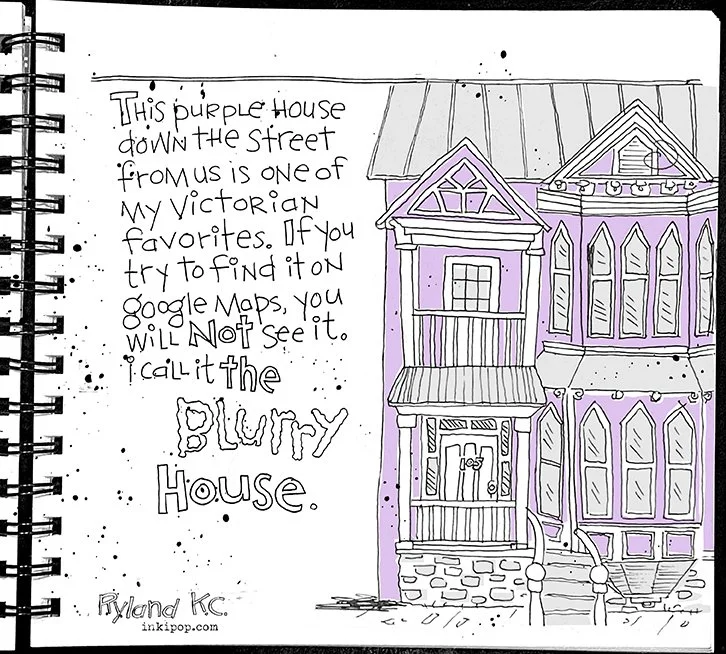 THiS purple House
down THe Street
from us is one of
my Victorian
favorites. If you
try to find it on
google Maps, you
will Not See it.
i call it the
Blurry
House.
105
Ryland K.C.
inkipop.com